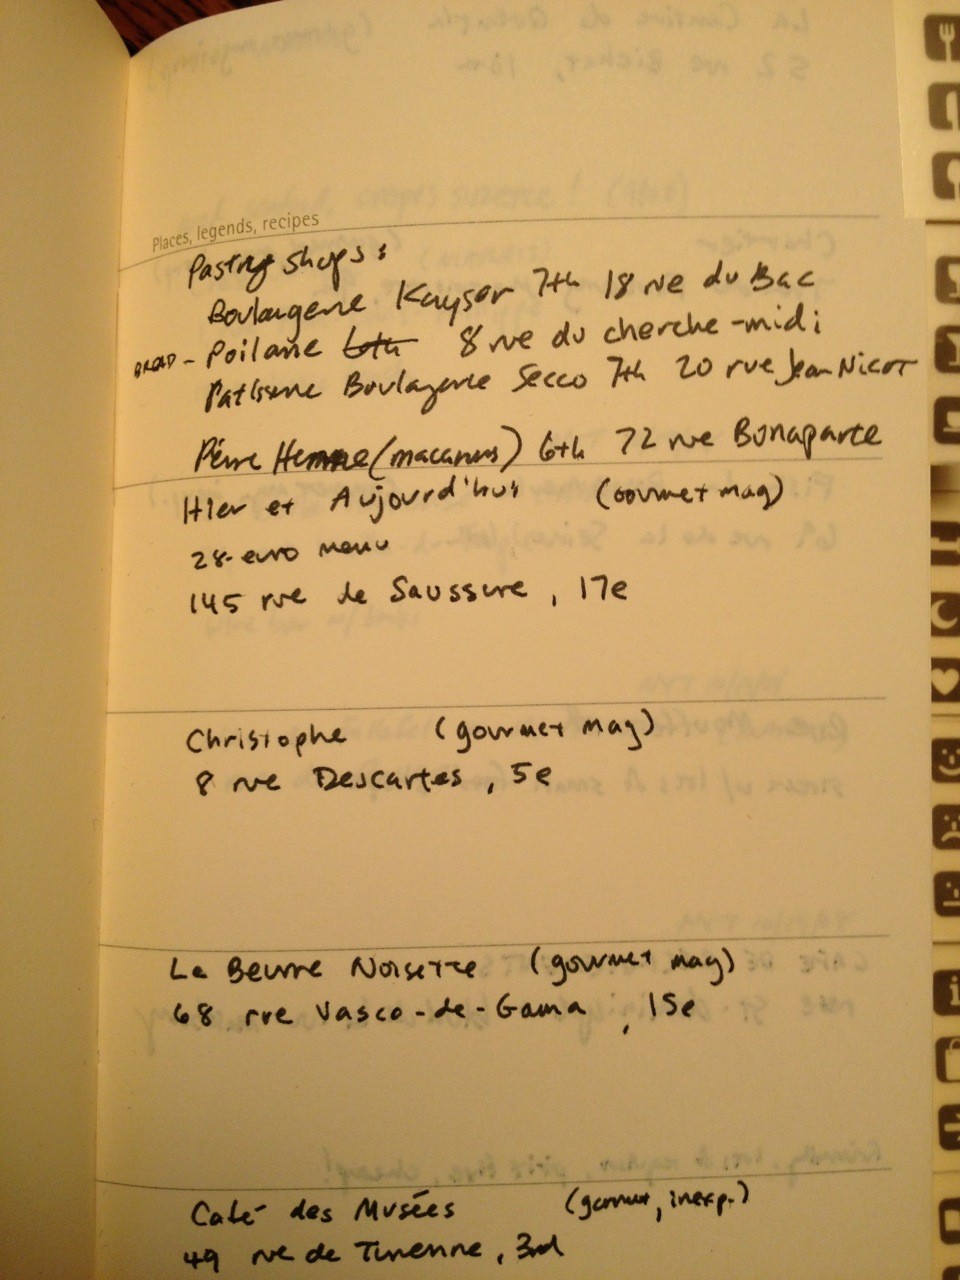 Places, legends, recipes
Pastry shops:
Boulangerie Kayser 7th 18 rue du Bac
BREAD - Poilane 6th 8 rue du cherche-midi
Patisserie Boulangerie Secco 7th 20 rue Jean Nicot
Pierre Herme (macarons) 6th 72 rue Bonaparte
Hier et Aujourd'hui (gourmet mag)
28-euro menu
145 rue de Saussure, 17e
Christophe (gourmet mag)
8 rue Descartes, 5e
Le Beurre Noisette (gourmet mag)
68 rue Vasco-de-Gama, 15e
Café des Musées (gourmet, inexp.)
49 rue de Turenne, 3rd